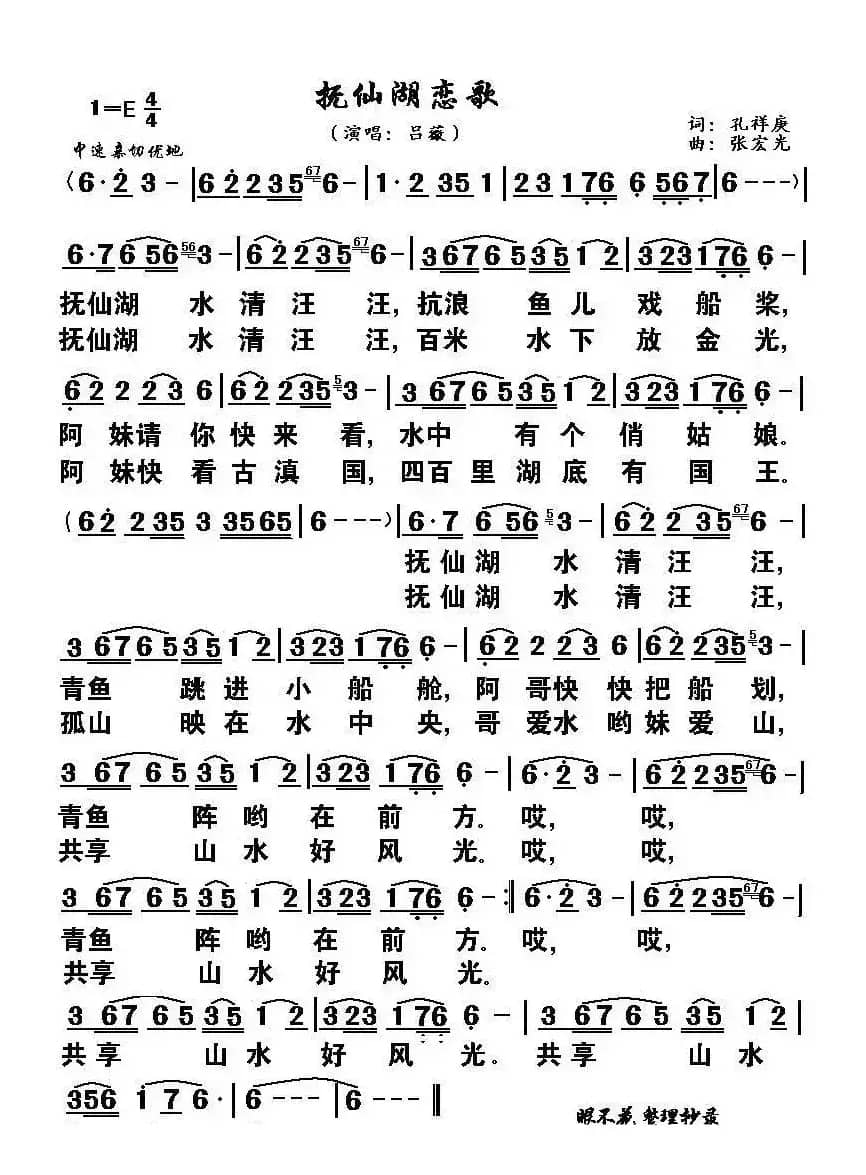 抚仙湖恋歌
1=E 4/4
（演唱：吕薇）
词：孔祥庚
曲：张宏光
中速 亲切优地
（6·2 3- | 6 2235 67 6- | 1·2 35 1 | 23 176 6 567 | 6---）|
6·7 656 56 3- | 62 2235 67 6- | 3676535 12 | 323176 6- |
抚仙湖 水清汪汪，抗浪 鱼儿戏船桨，
抚仙湖 水清汪汪，百米 水下放金光，
62 2 23 6 | 62 2235 5 3- | 3 67 65 35 12 | 323 176 6- |
阿妹请你快来看，水中 有个俏姑娘。
阿妹快看古滇国，四百里湖底有国王。
（62 235 3 3565 | 6---）| 6·7 6 56 5 3- | 62 2 35 67 6- |
抚仙湖 水清汪汪，
抚仙湖 水清汪汪，
3 67 65 35 12 | 323 176 6- | 62 2 23 6 | 62 2235 5 3- |
青鱼 跳进小船舱，阿哥快快把船划，
孤山 映在水中央，哥爱水哟妹爱山，
3 67 65 35 12 | 323 176 6- | 6·2 3- | 62 2235 67 6- |
青鱼 阵哟在前方。哎，哎，
共享 山水好风光。哎，哎，
3 67 65 35 12 | 323 176 6- :| 6·2 3- | 62 2235 67 6- |
青鱼 阵哟在前方。哎，哎，
共享 山水好风光。
3 67 65 35 12 | 323 176 6- | 3 67 65 35 12 |
共享 山水好风光。共享 山水
356 1 7 6· | 6--- | 6--- ‖
整理抄录